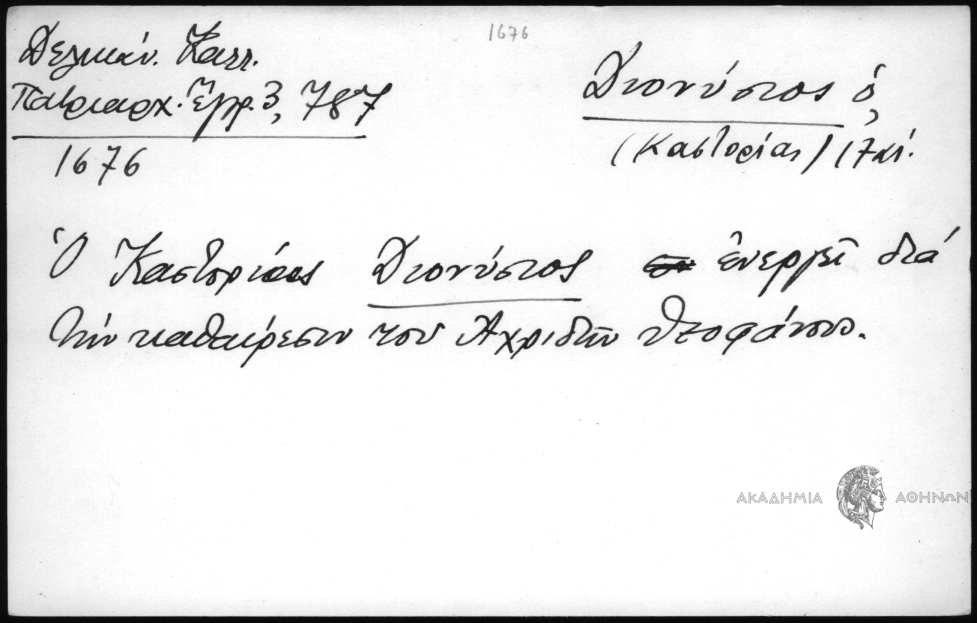 1676
Δελικάν. Καλλ.
Πατριαρχ. Ἔγγρ. 3, 787
1676
Διονύσιος ὁ,
(Καστορίας) 17 αἰ.
Ὁ Καστορίας Διονύσιος ἐνεργεῖ διά
τήν καθαίρεσιν τοῦ Ἀχριδῶν Θεοφάνους.
ΑΚΑΔΗΜΙΑ ΑΘΗΝΩΝ